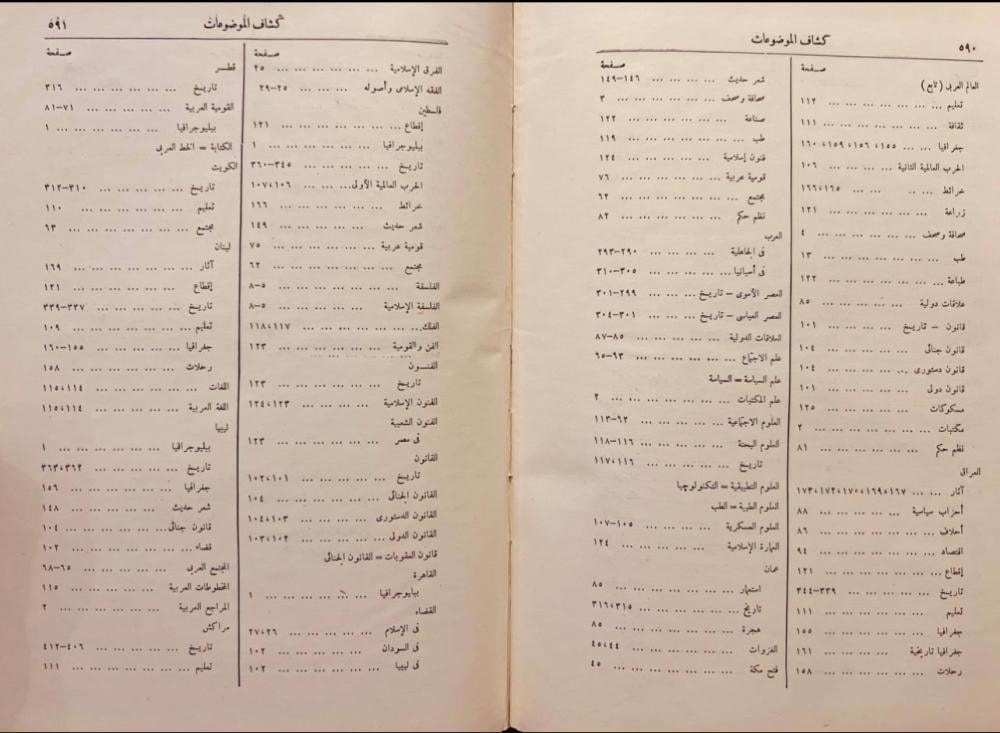 ٥٩٠
كشاف الموضوعات
صفحة
العالم العربى (تابع)
تعليم ... ... ... ... ... ... ١١٢
ثقافة ... ... ... ... ... ... ١١١
جغرافيا ... ... ١٥٥، ١٥٦، ١٥٩، ١٦٠
الحرب العالمية الثانية ... ... ... ١٠٦
خرائط ... ... ... ... ١٦٥،١٦٦
زراعة ... ... ... ... ... ... ١٢١
صحافة وصحف ... ... ... ... ... ٤
طب ... ... ... ... ... ... ١٣
طباعة ... ... ... ... ... ... ١٢٢
علاقات دولية ... ... ... ... ... ٨٥
قانون – تاريخ ... ... ... ... ١٠١
قانون جنائى ... ... ... ... ... ١٠٤
قانون دستورى ... ... ... ... ... ١٠٤
قانون دولى ... ... ... ... ... ١٠١
مسكوكات ... ... ... ... ... ١٢٥
مكتبات ... ... ... ... ... ... ٢
نظم حكم ... ... ... ... ... ٨١
العراق
آثار ... ... ١٦٧،١٦٩،١٧٠،١٧٢،١٧٣
أحزاب سياسية ... ... ... ... ... ٨٨
أحلاف ... ... ... ... ... ... ٨٦
اقتصاد ... ... ... ... ... ... ٩٤
إقطاع ... ... ... ... ... ... ١٢١
تاريخ ... ... ... ... ... ٣٣٩–٣٤٤
تعليم ... ... ... ... ... ... ١١١
جغرافيا ... ... ... ... ... ... ١٥٥
جغرافيا تاريخية ... ... ... ... ١٦١
رحلات ... ... ... ... ... ... ١٥٨
صفحة
شعر حديث ... ... ... ... ١٤٦–١٤٩
صحافة وصحف ... ... ... ... ... ٣
صناعة ... ... ... ... ... ... ١٢٢
طب ... ... ... ... ... ... ١١٩
فنون إسلامية ... ... ... ... ... ١٢٤
قومية عربية ... ... ... ... ... ٧٦
مجتمع ... ... ... ... ... ... ٦٢
نظم حكم ... ... ... ... ... ... ٨٢
العرب
فى الجاهلية ... ... ... ... ٢٩٠–٢٩٣
فى أسبانيا ... ... ... ... ٣٠٥–٣١٠
العصر الأموى – تاريخ ... ... ... ٢٩٩–٣٠١
العصر العباسى – تاريخ ... ... ... ٣٠١–٣٠٤
العلاقات الدولية ... ... ... ... ٨٥–٨٧
علم الاجتماع ... ... ... ... ... ٦٣–٦٥
علم السياسة = السياسة
علم المكتبات ... ... ... ... ... ... ٢
العلوم الاجتماعية ... ... ... ... ٦٢–١١٣
العلوم البحتة ... ... ... ... ١١٦–١١٨
تاريخ ... ... ... ... ... ١١٦،١١٧
العلوم التطبيقية = التكنولوچيا
العلوم الطبية = الطب
العلوم العسكرية ... ... ... ... ١٠٥–١٠٧
العمارة الإسلامية ... ... ... ... ١٢٤
عمان
استعمار ... ... ... ... ... ... ٨٥
تاريخ ... ... ... ... ... ٣١٥،٣١٦
هجرة ... ... ... ... ... ... ٨٥
الغزوات ... ... ... ... ... ٤٤،٤٥
فتح مكة ... ... ... ... ... ... ٤٥
كشاف الموضوعات
٥٩١
صفحة
الفرق الإسلامية ... ... ... ... ... ... ٢٥
الفقه الإسلامى وأصوله ... ... ... ٢٥–٢٩
فلسطين
إقطاع ... ... ... ... ... ... ... ١٢١
بيليوجرافيا ... ... ... ... ... ... ١
تاريخ ... ... ... ... ... ٣٤٥–٣٦٠
الحرب العالمية الأولى ... ... ... ١٠٦،١٠٧
خرائط ... ... ... ... ... ... ١٦٦
شعر حديث ... ... ... ... ... ١٤٩
قومية عربية ... ... ... ... ... ... ٧٥
مجتمع ... ... ... ... ... ... ٦٢
الفلسفة ... ... ... ... ... ... ٥–٨
الفلسفة الإسلامية ... ... ... ... ... ٥–٨
الفلك ... ... ... ... ... ... ١١٧،١١٨
الفن والقومية ... ... ... ... ... ... ١٢٣
الفنــون
تاريخ ... ... ... ... ... ... ١٢٣
الفنون الإسلامية ... ... ... ... ١٢٣،١٢٤
الفنون الشعبية
فى مصر ... ... ... ... ... ... ١٢٣
القانون
تاريخ ... ... ... ... ... ١٠١،١٠٢
القانون الجنائى ... ... ... ... ... ١٠٤
القانون الدستورى ... ... ... ... ١٠٣،١٠٤
القانون الدولى ... ... ... ... ١٠٢،١٠٣
قانون العقوبات = القانون الجنائى
القاهرة
ببليوجرافيا ... ... ... ... ... ... ١
القضاء
فى الإسلام ... ... ... ... ... ٢٦،٢٧
فى السودان ... ... ... ... ... ١٠٢
فى ليبيا ... ... ... ... ... ... ١٠٢
صفحة
قطــر
تاريخ ... ... ... ... ... ... ٣١٦
القومية العربية ... ... ... ... ٧١–٨١
بيليوجرافيا ... ... ... ... ... ... ١
الكتابة = الخط العربى
الكويت
تاريخ ... ... ... ... ... ٣١٠–٣١٢
تعليم ... ... ... ... ... ... ١١٠
مجتمع ... ... ... ... ... ... ٦٣
لبنان
آثار ... ... ... ... ... ... ١٦٩
إقطاع ... ... ... ... ... ... ١٢١
تاريخ ... ... ... ... ... ٣٣٧–٣٣٩
تعليم ... ... ... ... ... ... ١٠٩
جغرافيا ... ... ... ... ... ١٥٥–١٦٠
رحلات ... ... ... ... ... ... ١٥٨
اللغات ... ... ... ... ... ١١٤،١١٥
اللغة العربية ... ... ... ... ١١٤،١١٥
ليبيا
بيليوجرافيا ... ... ... ... ... ... ١
تاريخ ... ... ... ... ... ٣٦٢،٣٦٣
جغرافيا ... ... ... ... ... ... ١٥٦
شعر حديث ... ... ... ... ... ١٤٨
قانون جنائى ... ... ... ... ... ١٠٤
قضاء ... ... ... ... ... ... ١٠٢
المجتمع العربى ... ... ... ... ٦٥–٦٨
المخطوطات العربية ... ... ... ... ١١٥
المراجع العربية ... ... ... ... ... ٢
مراكش
تاريخ ... ... ... ... ... ٤٠٦–٤١٢
تعليم ... ... ... ... ... ... ١١١